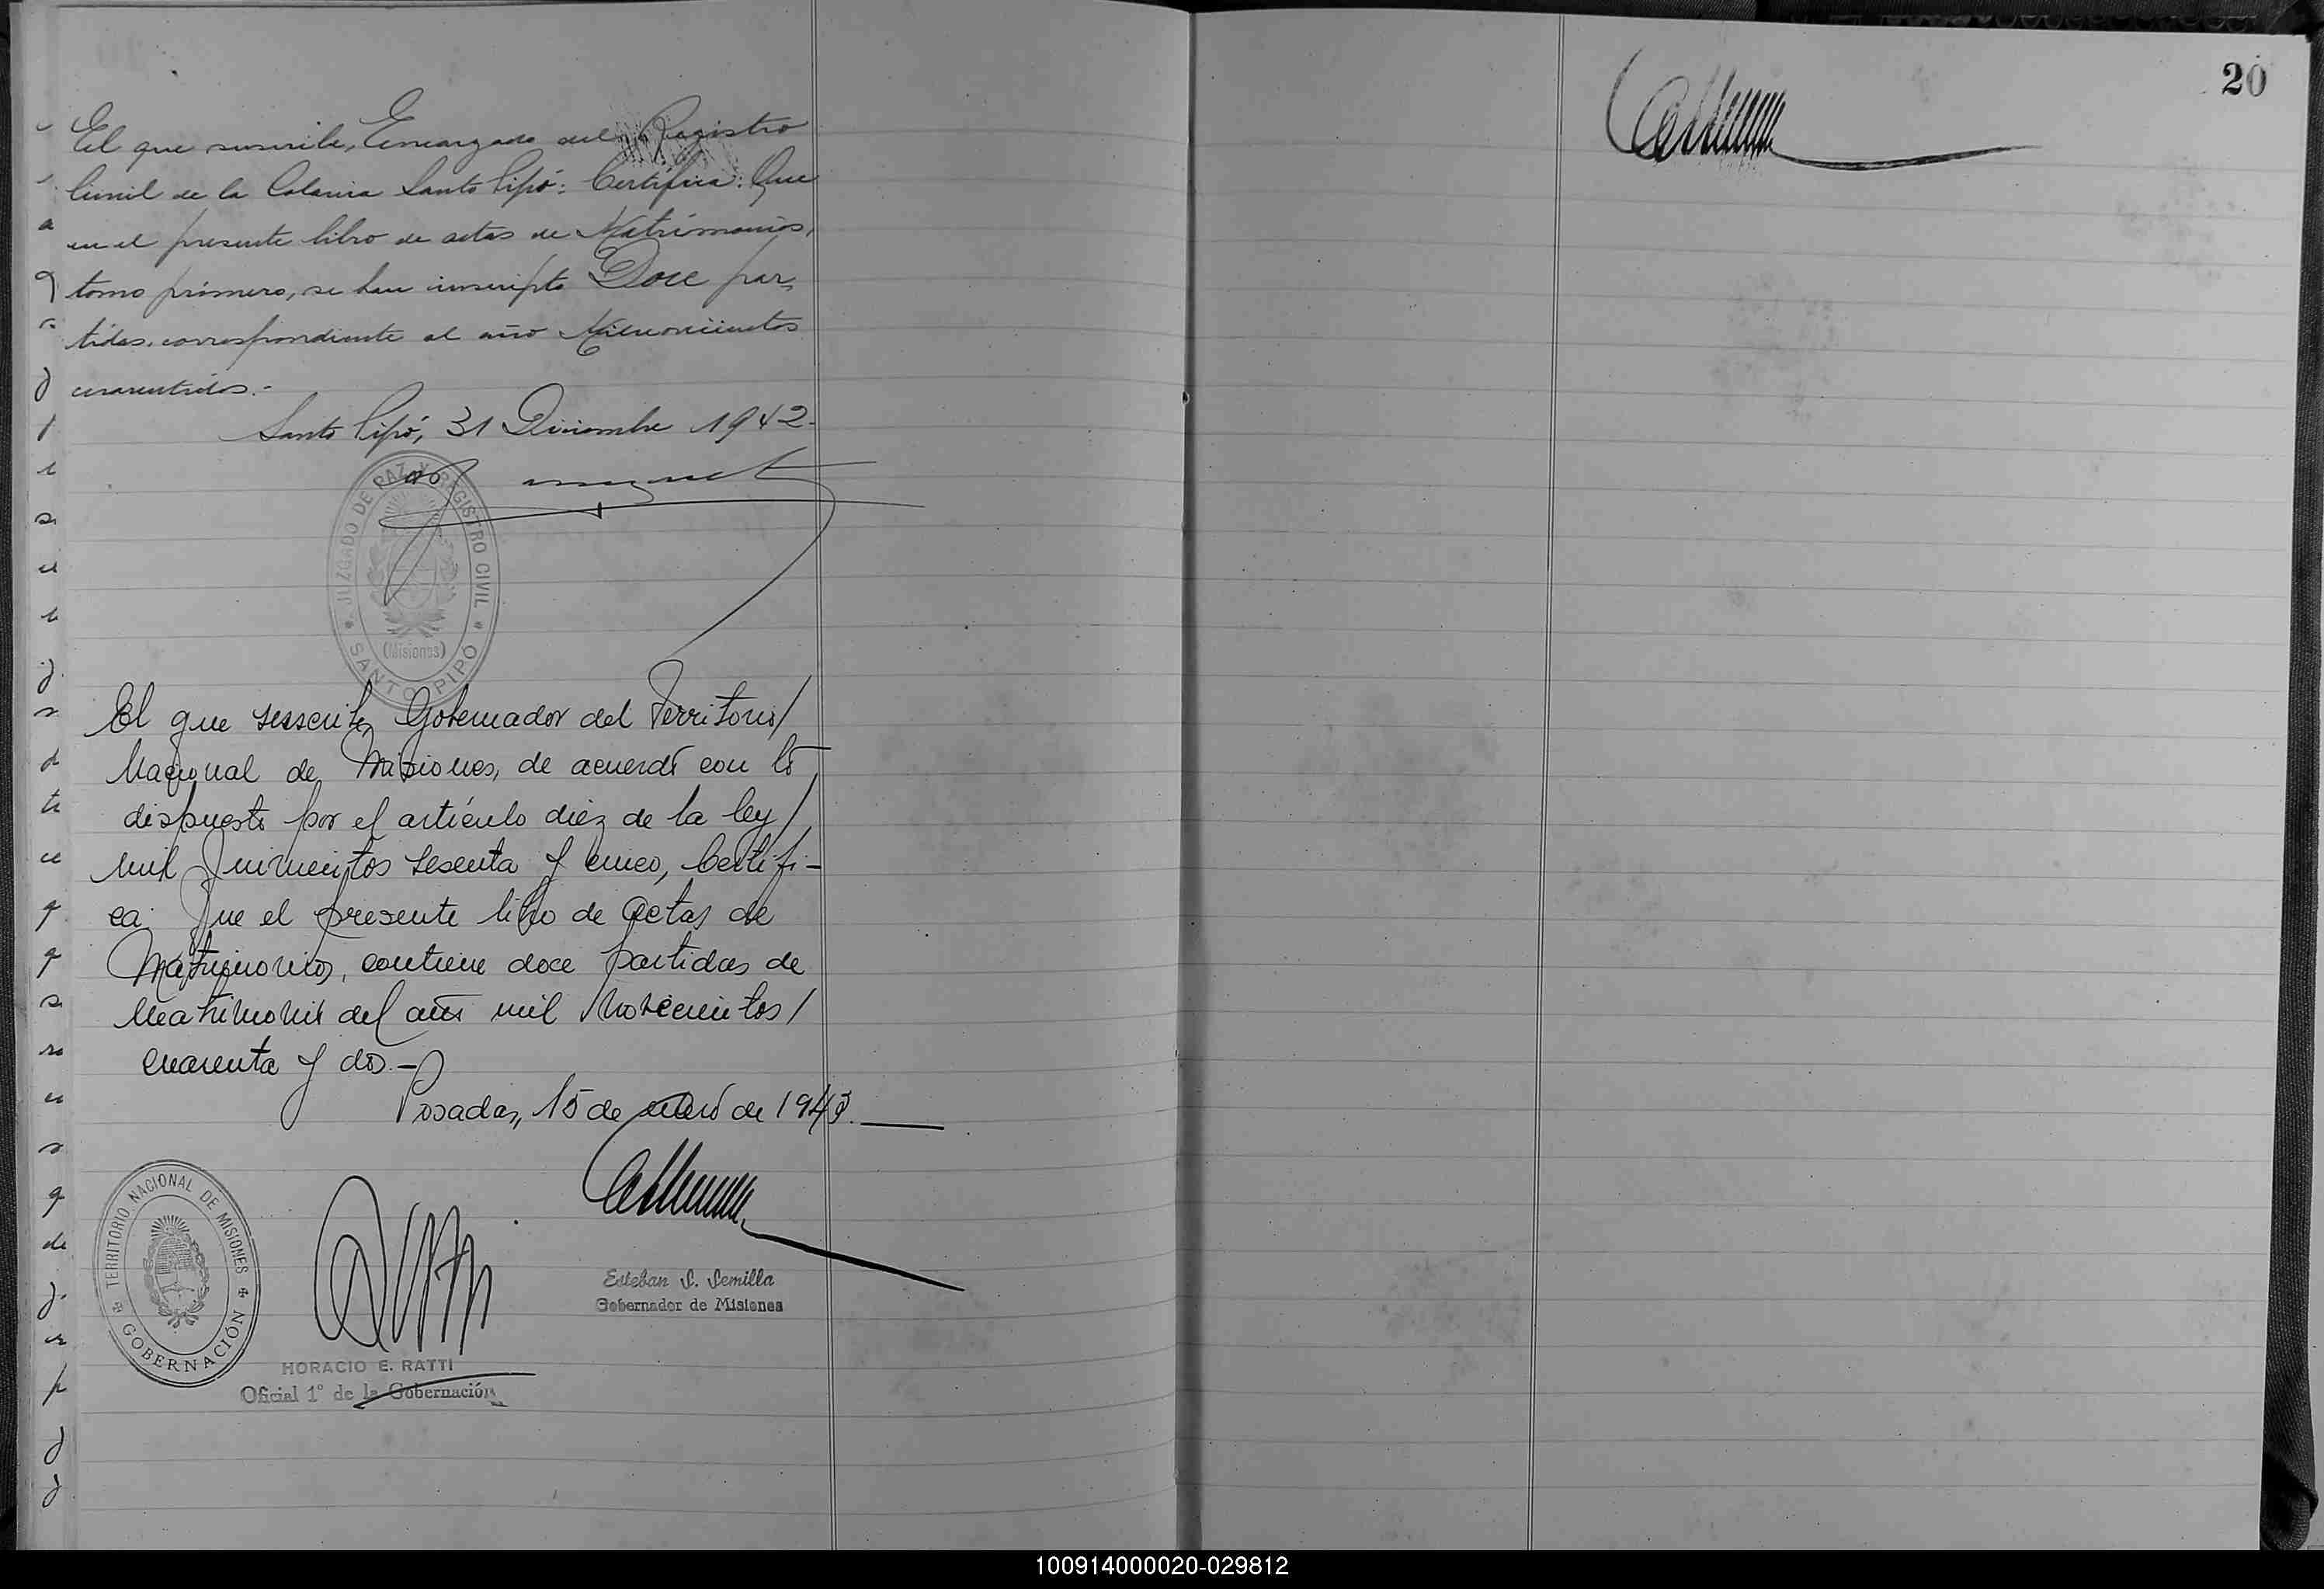 El que suscribe, Encargado del Registro
Civil de la Colonia Santo Pipó: Certifica: Que
en el presente libro de actas de Matrimonios,
tomo primero, se han inscripto Doce par-
tidas, correspondiente al año Milnovecientos
cuarentidos.-
Santo Pipó, 31 Diciembre 1942-
JUZGADO DE PAZ Y REGISTRO CIVIL
(Misiones)
SANTO PIPÓ
El que suscribe, Gobernador del Territorio/
Nacional de Misiones, de acuerdo con lo
dispuesto por el artículo diez de la ley/
mil quinientos sesenta y cinco, Certifi-
ca: Que el presente libro de actas de
Matrimonios, contiene doce partidas de
Matrimonio del año mil novecientos/
cuarenta y dos.-
Posadas, 15 de enero de 1943.
TERRITORIO NACIONAL DE MISIONES
GOBERNACIÓN
HORACIO E. RATTI
Oficial 1º de la Gobernación
Esteban S. Semilla
Gobernador de Misiones
20
100914000020-029812